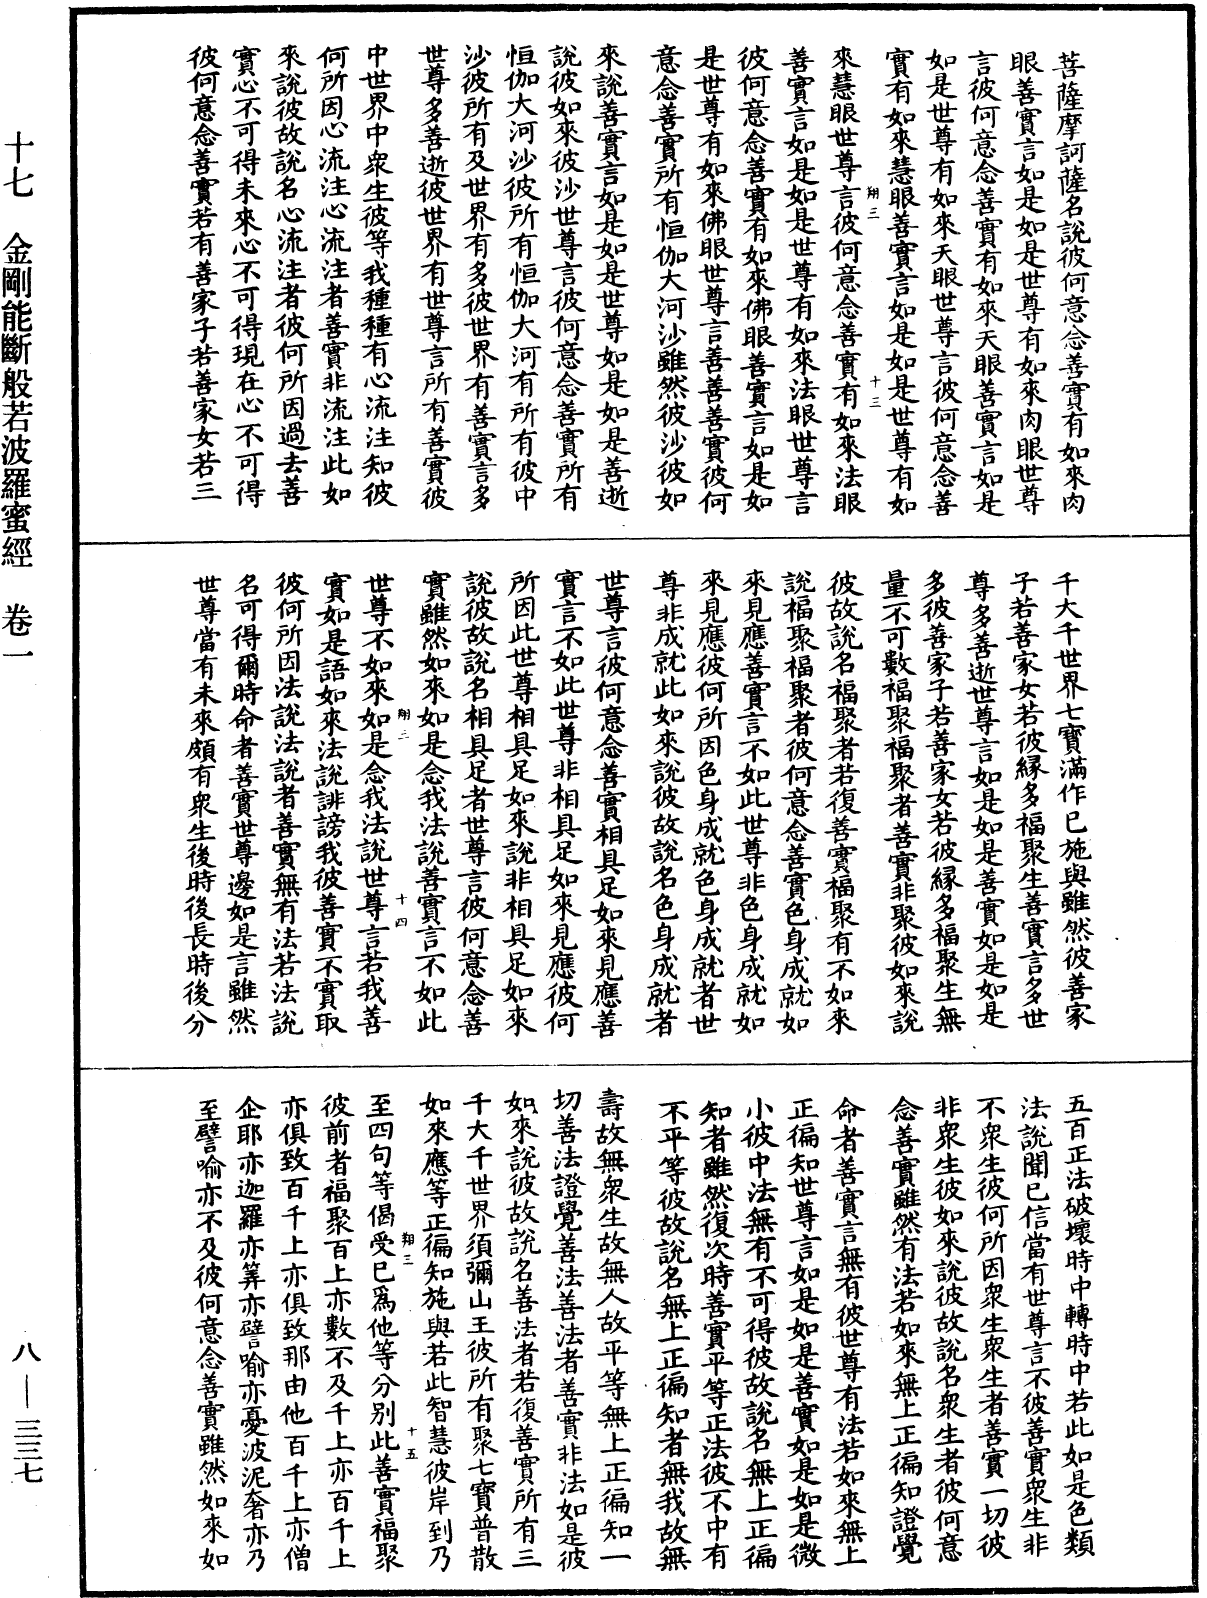 菩薩摩訶薩名說彼何意念善實有如來肉
眼善實言如是如是世尊有如來肉眼世尊
言彼何意念善實有如來天眼善實言如是
如是世尊有如來天眼世尊言彼何意念善
實有如來慧眼善實言如是如是世尊有如
翔三
十三
來慧眼世尊言彼何意念善實有如來法眼
善實言如是如是世尊有如來法眼世尊言
彼何意念善實有如來佛眼善實言如是如
是世尊有如來佛眼世尊言善善善實彼何
意念善實所有恒伽大河沙雖然彼沙彼如
來說善實言如是如是世尊如是如是善逝
說彼如來彼沙世尊言彼何意念善實所有
恒伽大河沙彼所有恒伽大河有所有彼中
沙彼所有及世界有多彼世界有善實言多
世尊多善逝彼世界有世尊言所有善實彼
中世界中衆生彼等我種種有心流注知彼
何所因心流注心流注者善實非流注此如
來說彼故說名心流注者彼何所因過去善
實心不可得未來心不可得現在心不可得
彼何意念善實若有善家子若善家女若三
千大千世界七寶滿作已施與雖然彼善家
子若善家女若彼緣多福聚生善實言多世
尊多善逝世尊言如是如是善實如是如是
多彼善家子若善家女若彼緣多福聚生無
量不可數福聚福聚者善實非聚彼如來說
彼故說名福聚者若復善實福聚有不如來
說福聚福聚者彼何意念善實色身成就如
來見應善實言不如此世尊非色身成就如
來見應彼何所因色身成就色身成就者世
尊非成就此如來說彼故說名色身成就者
世尊言彼何意念善實相具足如來見應善
實言不如此世尊非相具足如來見應彼何
所因此世尊相具足如來說非相具足如來
說彼故說名相具足者世尊言彼何意念善
實雖然如來如是念我法說善實言不如此
翔三
十四
世尊不如來如是念我法說世尊言若我善
實如是語如來法說誹謗我彼善實不實取
彼何所因法說法說者善實無有法若法說
名可得爾時命者善實世尊邊如是言雖然
世尊當有未來頗有衆生後時後長時後分
五百正法破壞時中轉時中若此如是色類
法說聞已信當有世尊言不彼善實衆生非
不衆生彼何所因衆生衆生者善實一切彼
非衆生彼如來說彼故說名衆生者彼何意
念善實雖然有法若如來無上正徧知證覺
命者善實言無有彼世尊有法若如來無上
正徧知世尊言如是如是善實如是如是微
小彼中法無有不可得彼故說名無上正徧
知者雖然復次時善實平等正法彼不中有
不平等彼故說名無上正徧知者無我故無
壽故無衆生故無人故平等無上正徧知一
切善法證覺善法善法者善實非法如是彼
如來說彼故說名善法者若復善實所有三
千大千世界須彌山王彼所有聚七寶普散
如來應等正徧知施與若此智慧彼岸到乃
翔三
十五
至四句等偈受已爲他等分別此善實福聚
彼前者福聚百上亦數不及千上亦百千上
亦俱致百千上亦俱致那由他百千上亦僧
企耶亦迦羅亦筭亦譬喻亦憂波泥奢亦乃
至譬喻亦不及彼何意念善實雖然如來如
十七 金剛能斷般若波羅蜜經 卷一
八—三三七